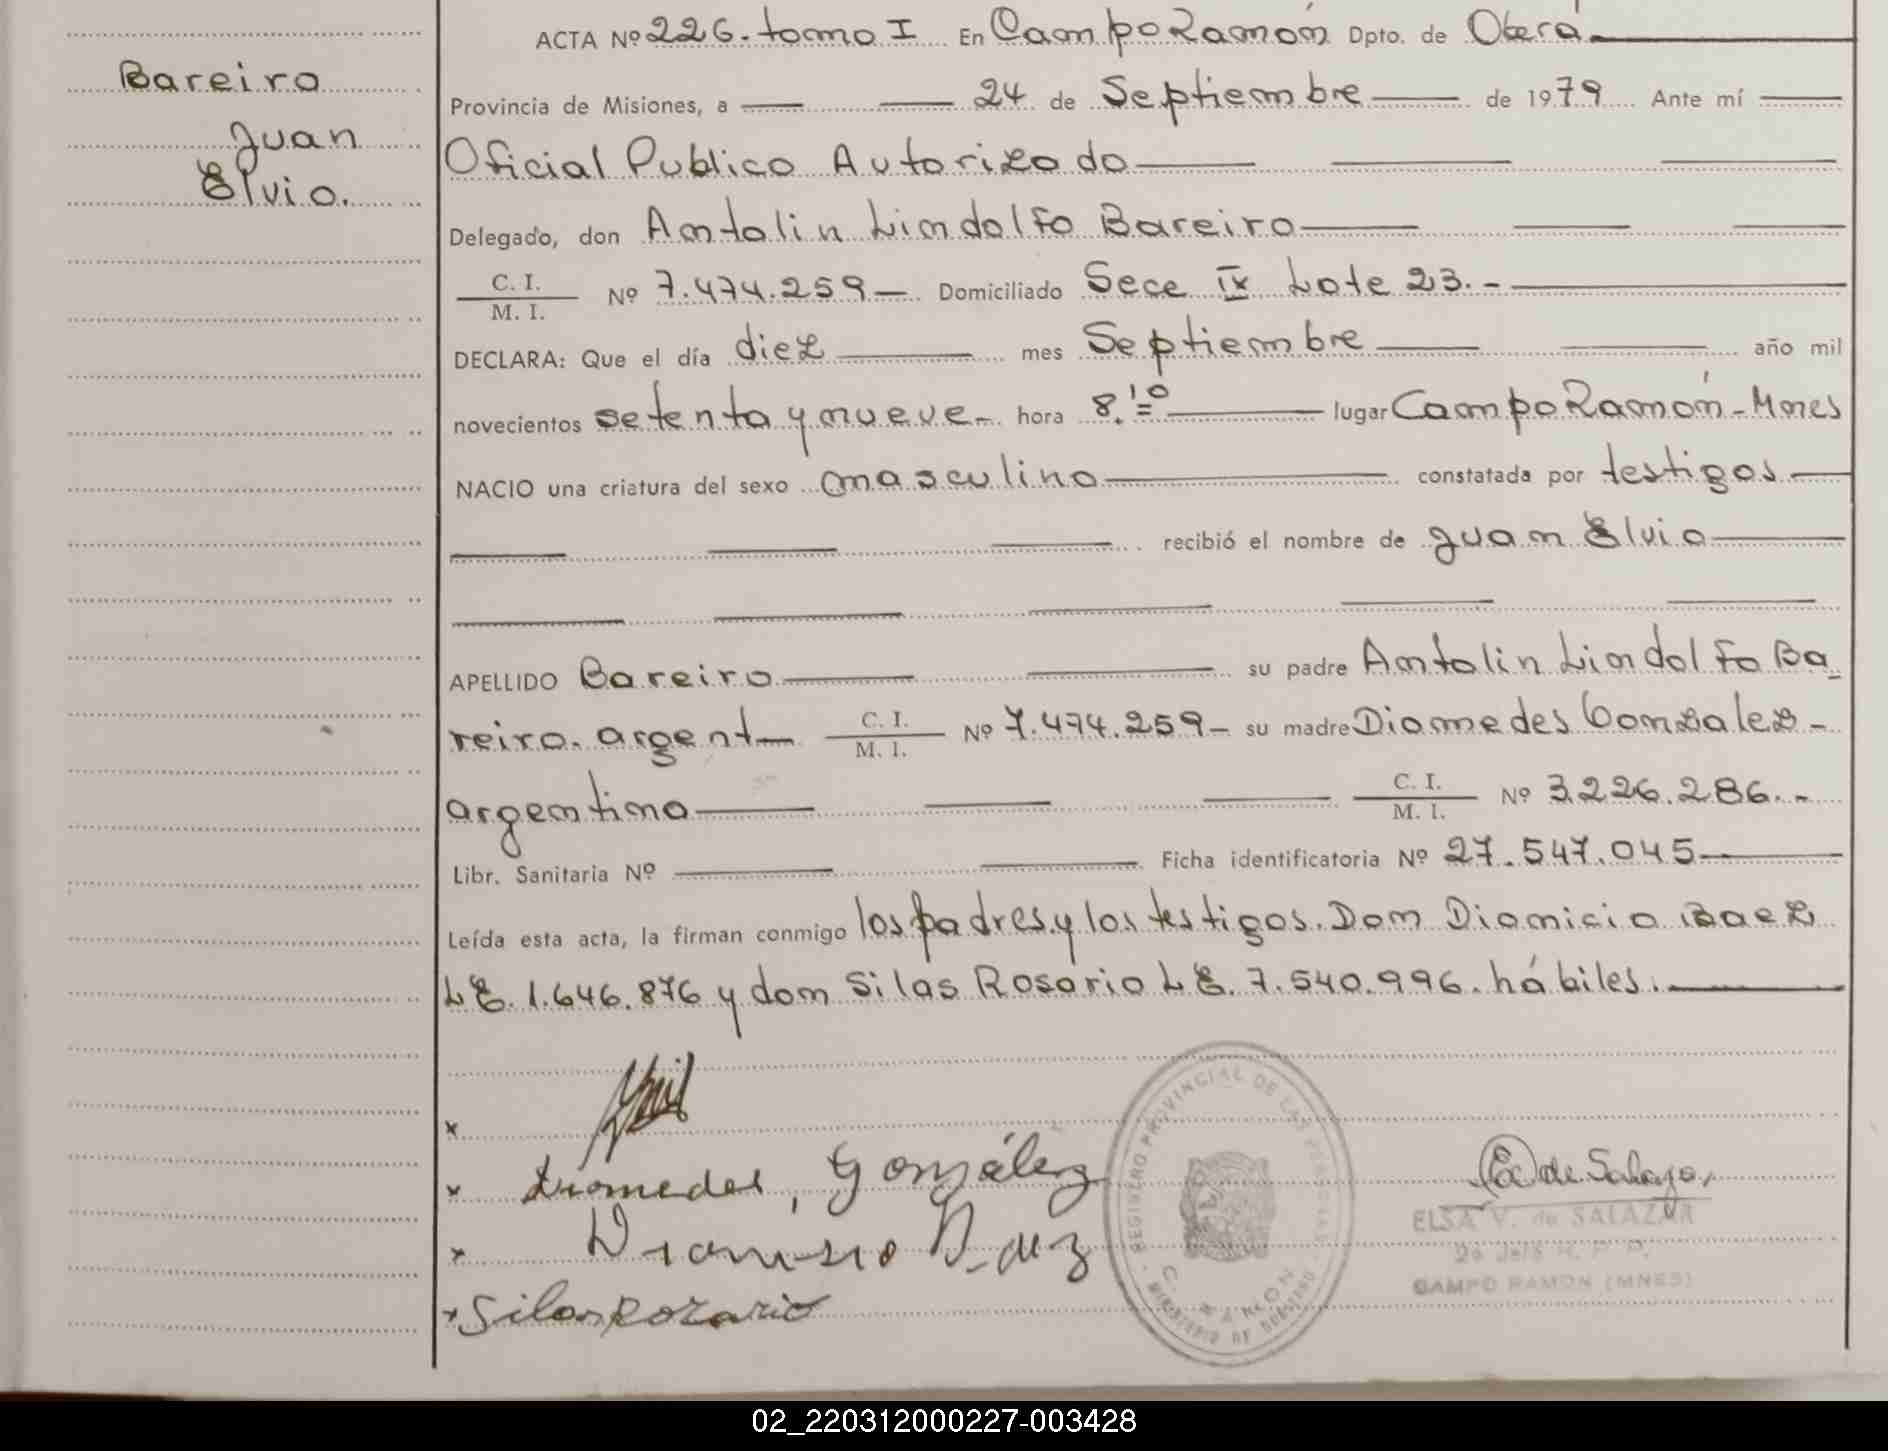 Bareiro
Juan
Elvio.
ACTA Nº 226. tomo I En Campo Ramón Dpto. de Oberá
Provincia de Misiones, a 24 de Septiembre de 1979 Ante mí
Oficial Publico Autorizado
Delegado, don Antolin Lindolfo Bareiro
C. I.
M. I. Nº 7.474.259 Domiciliado Secc IX Lote 23.-
DECLARA: Que el día diez mes Septiembre año mil
novecientos setenta y nueve hora 8.10 lugar Campo Ramón - Mnes
NACIO una criatura del sexo masculino constatada por testigos
recibió el nombre de Juan Elvio
APELLIDO Bareiro su padre Antolin Lindolfo Ba-
reiro. argent C. I. M. I. Nº 7.474.259 su madre Diomedes Gonzalez -
argentina C. I. M. I. Nº 3.226.286.-
Libr. Sanitaria Nº Ficha identificatoria Nº 27.547.045
Leída esta acta, la firman conmigo los padres y los testigos. Don Dionicio Baez
LE. 1.646.876 y don Silas Rosario LE. 7.540.996. hábiles.
x
x Diomedes, González
x Dionisio Baez
x Silas Rozario
REGISTRO PROVINCIAL DE LAS PERSONAS
C. RAMON
MINISTERIO DE GOBIERNO
E de Salazar
ELSA V. de SALAZAR
CAMPO RAMON (MNES)
02_220312000227-003428